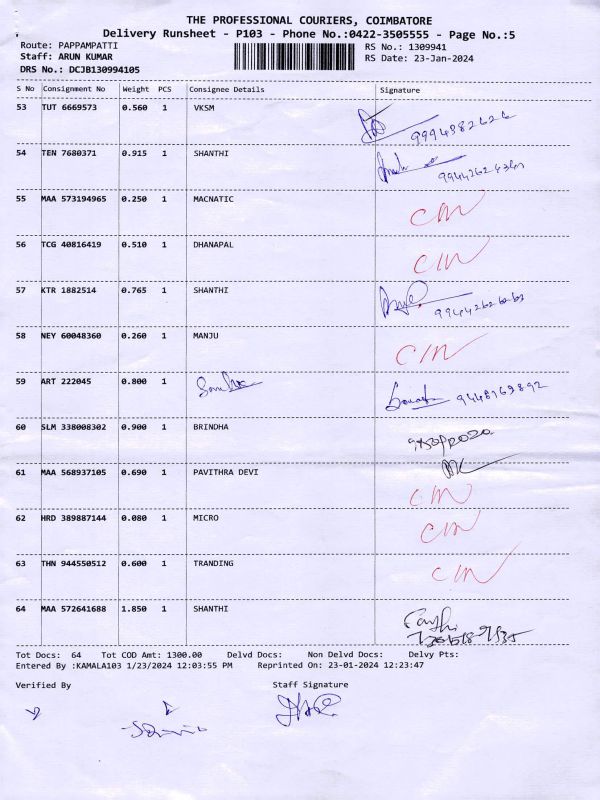 THE PROFESSIONAL COURIERS, COIMBATORE
Delivery Runsheet - P103 - Phone No.:0422-3505555 - Page No.:5
Route: PAPPAMPATTI RS No.: 1309941
Staff: ARUN KUMAR RS Date: 23-Jan-2024
DRS No.: DCJB130994105
S No Consignment No Weight PCS Consignee Details Signature
53 TUT 6669573 0.560 1 VKSM
54 TEN 7680371 0.915 1 SHANTHI
55 MAA 573194965 0.250 1 MACNATIC C/N
56 TCG 40816419 0.510 1 DHANAPAL C/N
57 KTR 1882514 0.765 1 SHANTHI
58 NEY 60048360 0.260 1 MANJU C/N
59 ART 222045 0.800 1 9448169892
60 SLM 338008302 0.900 1 BRINDHA
61 MAA 568937105 0.690 1 PAVITHRA DEVI C/N
62 HRD 389887144 0.080 1 MICRO C/N
63 THN 944550512 0.600 1 TRANDING C/N
64 MAA 572641688 1.850 1 SHANTHI
Tot Docs: 64 Tot COD Amt: 1300.00 Delvd Docs: Non Delvd Docs: Delvy Pts:
Entered By :KAMALA103 1/23/2024 12:03:55 PM Reprinted On: 23-01-2024 12:23:47
Verified By Staff Signature